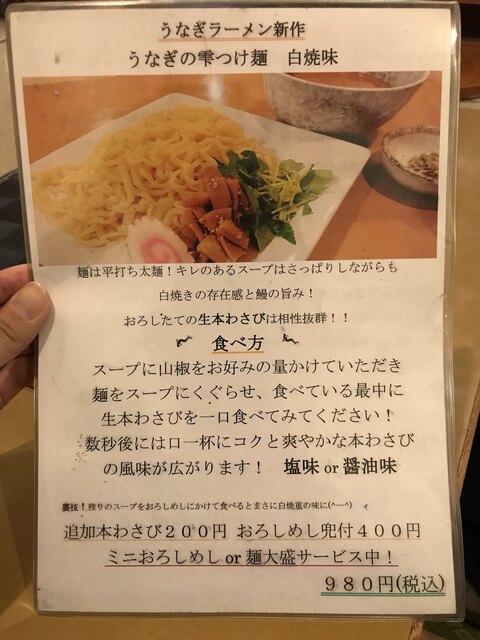 うなぎラーメン新作
うなぎの雫つけ麺　白焼味
麺は平打ち太麺！キレのあるスープはさっぱりしながらも
白焼きの存在感と鰻の旨み！
おろしたての生本わさびは相性抜群！！
食べ方
スープに山椒をお好みの量かけていただき
麺をスープにくぐらせ、食べている最中に
生本わさびを一口食べてみてください！
数秒後には口一杯にコクと爽やかな本わさび
の風味が広がります！　塩味 or 醤油味
裏技！残りのスープをおろしめしにかけて食べるとまさに白焼重の味に(^―^)
追加本わさび２００円 おろしめし兜付４００円
ミニおろしめし or 麺大盛サービス中！
９８０円(税込)